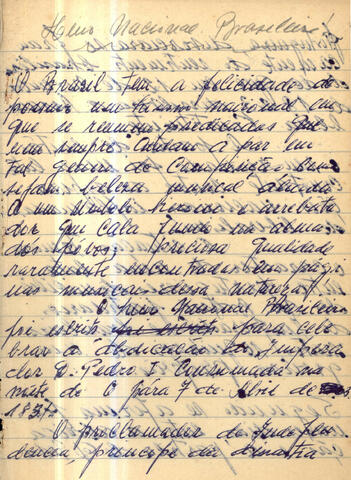 Hino Nacional Brasileiro
O Brasil tem a felicidade de
possuir um hino nacional em
que se reunem predicados que
nem sempre andam a par em
tal genero de composição. Ou
sejam: beleza musical aliada
a um simbolismo e arrebata
dor que cala fundo na alma
dos povos; preciosa qualidade
raramente encontrada em pági
nas musicais dessa natureza.
O hino Nacional Brasileiro
foi escrito para cele
brar a abdicação do Impera
dor D. Pedro I consumada na
noite de 6 pára 7 de Abril de
1831.
O proclamador da Indepen
dencia, principe da dinastia